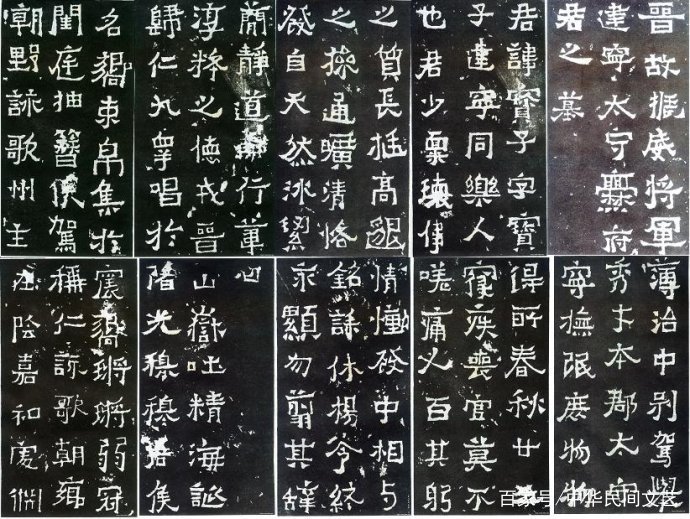 晉故振威將軍
建寧太守爨府
君之墓
君諱寶子字寶
子建寧同樂人
也君少稟瓌偉
之質長挺高邈
之操通曠清恪
發自天然冰絜
簡靜道兼行葦
淳粹之德戎晉
歸仁九皋唱於
名嚮束帛集於
閨庭抽簪俟駕
朝野詠歌州主
簿治中別駕舉
秀才本郡太守
寧撫氓庶物物
得所春秋廿
寢疾喪官莫不
嗟痛人百其躬
情慟發中相与
銘誄休揚令終
永顯勿翦其辭
曰
山嶽吐精海誕
陼光穆穆君侯
震嚮鏘鏘弱冠
稱仁詠歌朝鄉
在陰嘉和處淵
百家号/中华民间文艺